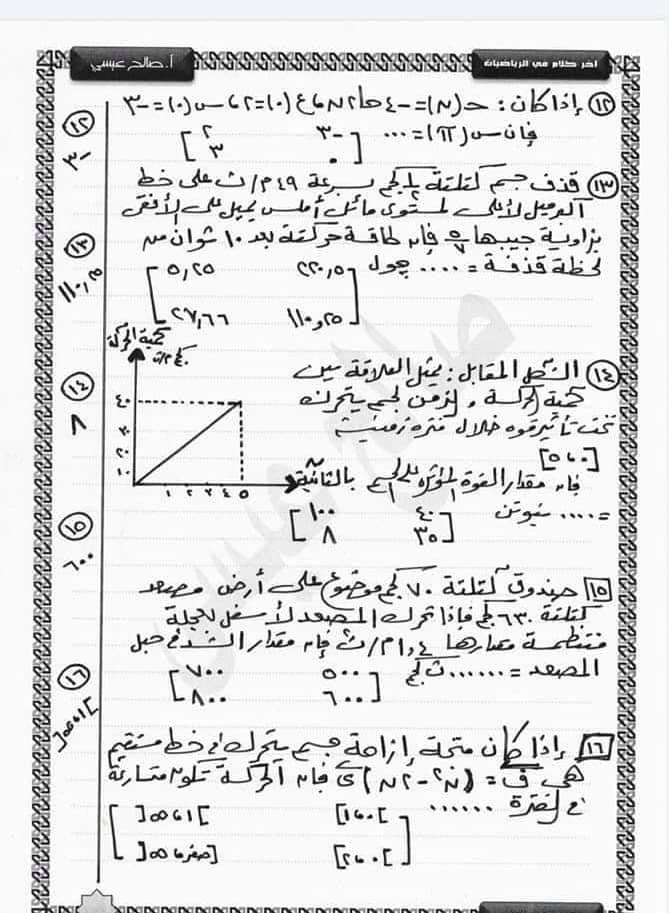 أ. صالح عيسى
آخر كلام في الرياضيات
١٢ إذا كان: حـ(ن) = -٤ حا ٢ن ، ع(٠) = ٢ ، س(٠) = -٣
فإن س(π) = ....
[ -٣ ٢
٠ ٣ ]
١٢
-٣
١٣ قذف جسم كتلته ١/٢ كجم بسرعة ٤٩ م/ث على خط
أكبر ميل لأعلى لمستوى مائل أملس يميل على الأفقى
بزاوية جيبها ٥/٧ فإن طاقة حركته بعد ١٠ ثوان من
لحظة قذفه = .... جول
[ ٢٢٠,٥ ٥,٢٥
١١٠,٢٥ ٢٧,٦٦ ]
١٣
١١٠,٢٥
١٤ الشكل المقابل: يمثل العلاقة بين
كمية الحركة والزمن لجسم يتحرك
تحت تأثير قوة خلال فترة زمنية
[٥،٠]
فإن مقدار القوة المؤثرة على الجسم
= .... نيوتن
[ ٤٠ ١٠٠
٣٥ ٨ ]
كمية الحركة
كجم.م/ث
٤٠
٣٠
٢٠
١٠
١ ٢ ٣ ٤ ٥
بالثانية
١٤
٨
١٥ صندوق كتلته ٧٠ كجم موضوع على أرض مصعد
كتلته ٦٣٠ كجم فإذا تحرك المصعد لأسفل بعجلة
منتظمة مقدارها ١,٤ م/ث² فإن مقدار الشد فى حبل
المصعد = ...... ث كجم
[ ٥٠٠ ٧٠٠
٦٠٠ ٨٠٠ ]
١٥
٦٠٠
١٦ إذا كان متجه إزاحة جسم يتحرك فى خط مستقيم
هى ف = (ن² - ٢ن) ى فإن الحركة تكون متسارعة
فى الفترة ......
[ ]١،٠[ ]١،∞[
]٢،٠[ ]صفر،∞[ ]
١٦
]١،∞[